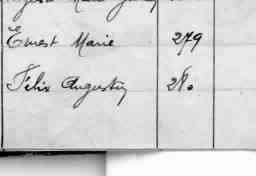 Ernest Marie 279
Félix Augustin 280